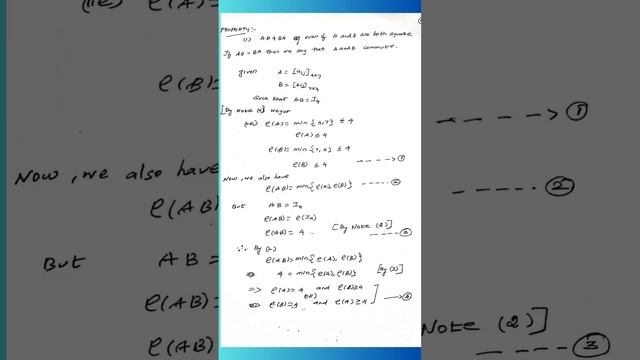 (ie) ρ(A) =
PROPERTY:-
(1) AB ≠ BA even if A and B are both square
If AB = BA then we say that A and B commutes.
given A = [aij]4x7
B = [bij]7x4
such that AB = I4
[By Note (1)] we get
(ie) ρ(A) = min {4,7} ≤ 4
ρ(A) ≤ 4
ρ(B) = min {7,4} ≤ 4
ρ(B) ≤ 4 -----> ①
Now, we also have
ρ(AB) = min{ρ(A), ρ(B)} ----- ②
But AB = I4
ρ(AB) = ρ(I4)
ρ(AB) = 4 .. [By Note (2)]
----- ③
∴ By (2)
ρ(AB) = min{ρ(A), ρ(B)}
⇒ 4 = min{ρ(A), ρ(B)} [By (3)]
=> ρ(A) = 4 and ρ(B) ≥ 4
(or)
⇒ ρ(B) = 4 and ρ(A) ≥ 4 ----> ④
-----> ①
Now, we also have
ρ(AB)
----- ②
But AB =
ρ(AB) =
ρ(AB) =
Note (2)]
----- ③